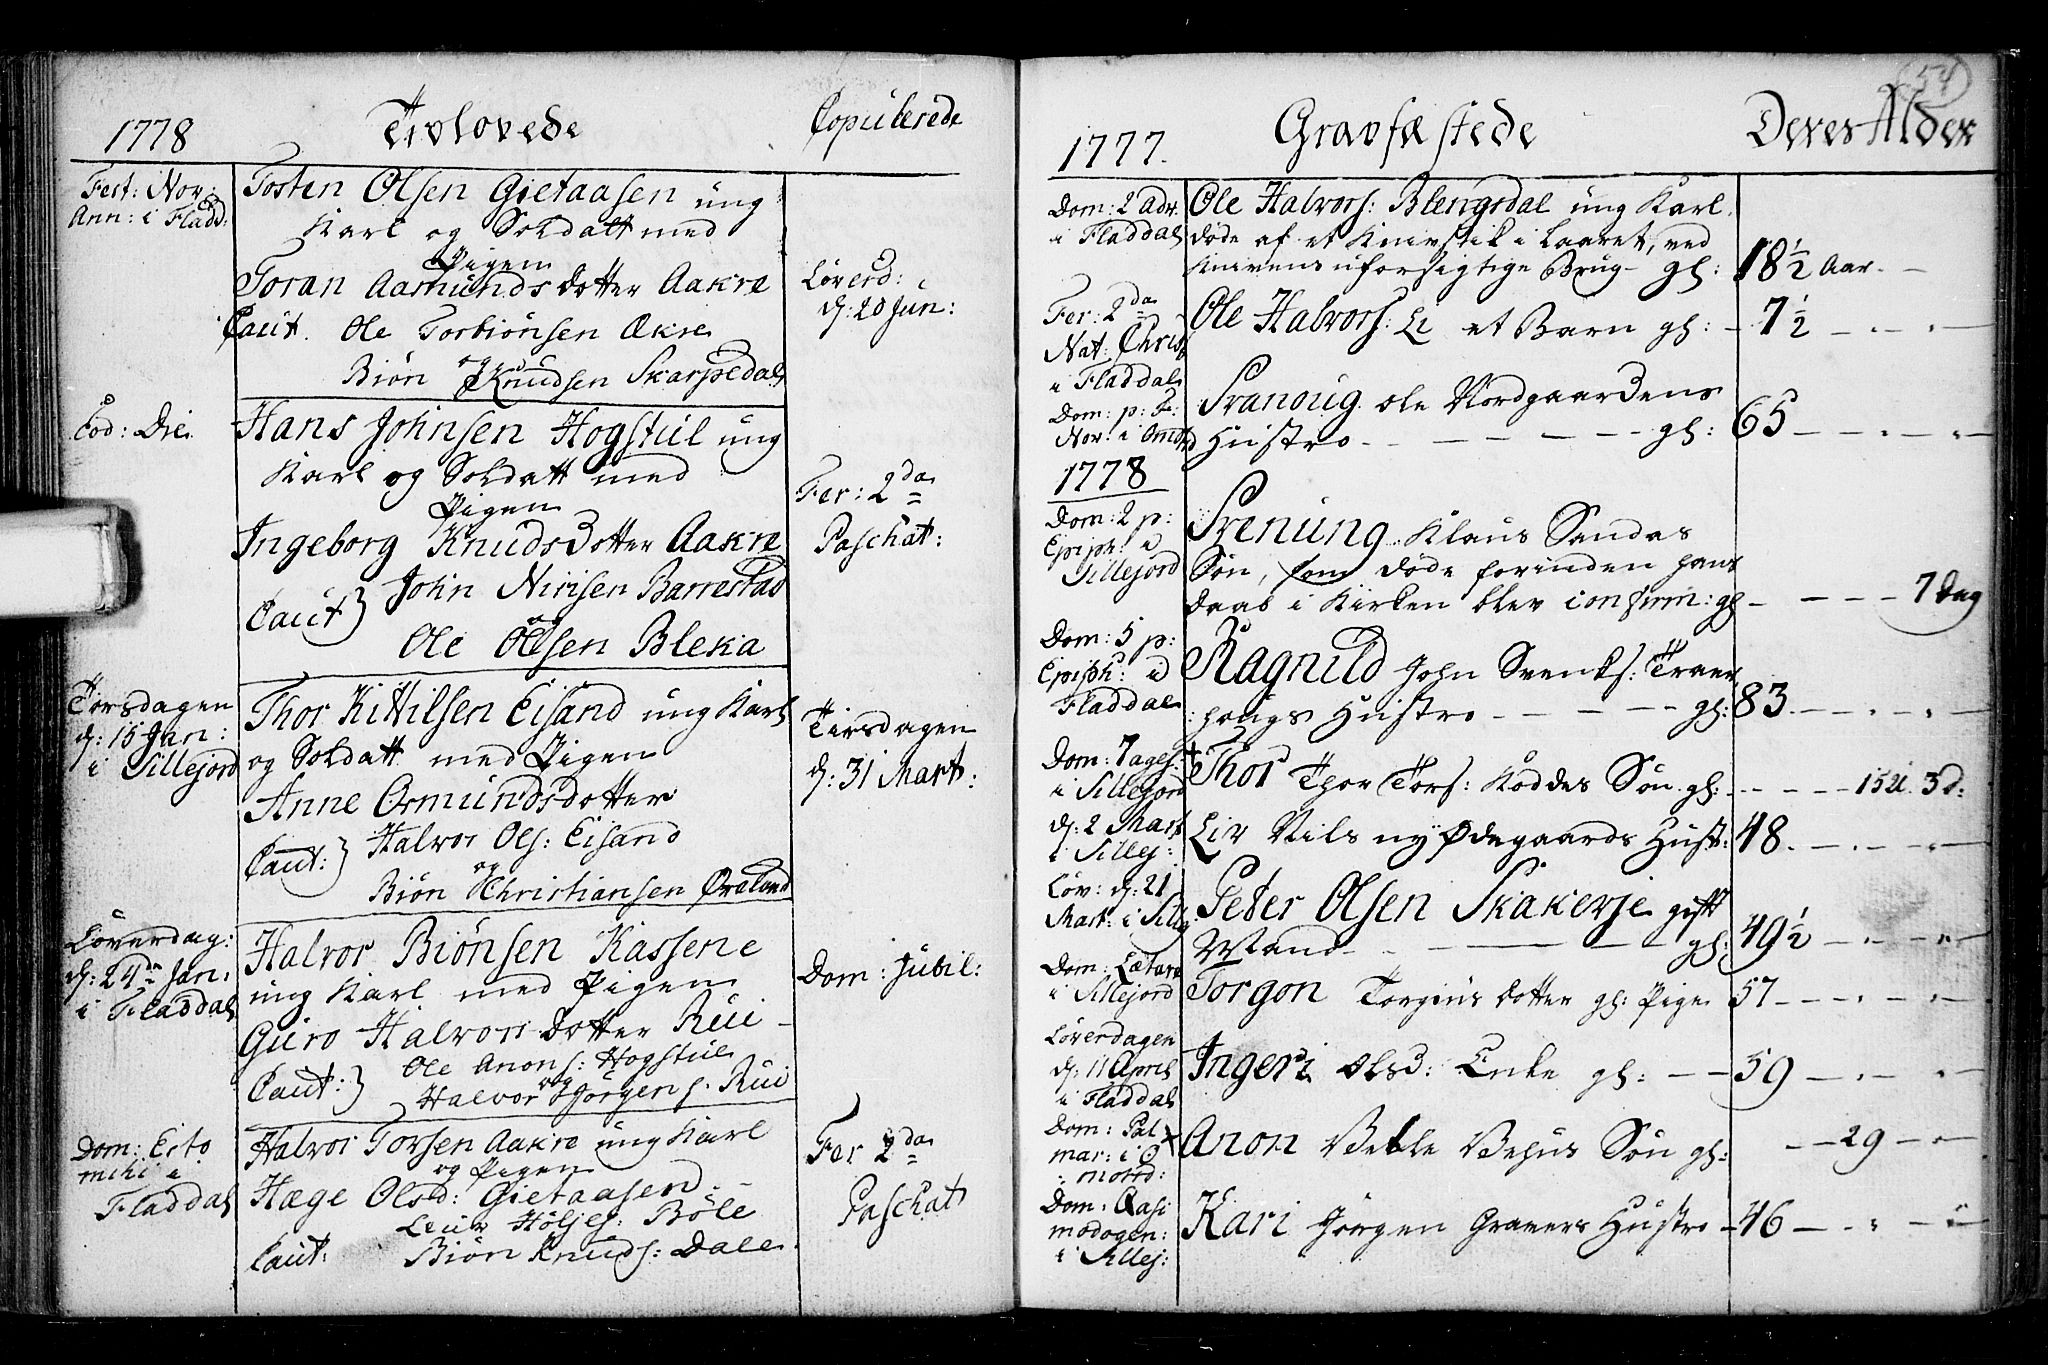 1778 Trolovede Copulerede
Fest: Nov:
Ann: i Fladd:
Tosten Olsen Gietaasen ung
Karl og Soldatt med
Pigen
Toran Aamunds dotter Aakre
Caut. Ole Torbiönsen Akre
og
Biön Knudsen Skarpedal
Löverd:
d: 20 Jun:
Eod: Die
Hans Johnsen Hogstul ung
Karl og Soldatt med
Pigen
Ingeborg Knudsdotter Aakre
Caut} John Nirisen Barrestad
og
Ole Olsen Bleka
Fer: 2da
Paschat:
Torsdagen
d: 15 Jan:
i Sillejord
Thor Kittilsen Eisand ung Karl
og Soldatt med Pigen
Anne Osmundsdotter
Caut:} Halvor Ols: Eisand
og
Biön Christiansen Öraland
Tirsdagen
d: 31 Mart:
Löverdag:
d: 24de Jan:
i Fladdal
Halvor Biönsen Kassene
ung Karl med Pigen
Guro Halvors dotter Rui
Caut:} Ole Anons: Hogstul
og
Halvor Jörgens. Rui
Dom: Jubil:
Dom: Esto
mihi i
Fladdal
Halvor Torsen Aakre ung Karl
og Pigen
Hæge Olsd: Gietaasen
Leiur Höljes: Böle
Caut: Biön Knuds: Dale
Fer 2da
Paschat
54
1777. Gravfæstede Deres Alder
Dom: 2 Adv:
i Fladdal
Ole Halvors: Blengsdal ung Karl.
döde af et Knivstik i Laaret, ved
Knivens uforsigtige Brug - gl: 18½ Aar
Fer: 2da
Nat: Christ
i Fladdal
Ole Halvors: Li et Barn gl: 7½
Dom: p: F:
Nov: i Omotsd
Svanoug Ole Nordgaardens
Hustro gl: 65
1778
Dom: 2 p:
Epiph: i
Sillejord
Svenung Klaus Sandas
Sön, som döde forinden hans
Daab i Kirken blev confirm: gl 7 Dag
Dom: 5 p:
Epiph: i
Fladdal
Ragnild John Svenks: Traen
hougs Hustro gl: 83
Dom: 7ages:
i Sillejord
Thor Thor Tors: Koddes Sön gl: 15 U. 3 d:
d: 2 Mart
i Sillej:
Liv Nils ny Ødegaards Hust: 48.
Löv: d: 21
Mart: i Sillej
Peter Olsen Skakerje gift
Mand gl: 49½
Dom: Lætare
i Sillejord
Torgon Torgius dotter gl: Pige 57
Löverdagen
d: 11 April
i Fladdal
Ingeri Olsd: Enke gl: 59
Dom: Pal
mar: i O
motsd:
Anon Veble Vehus Sön gl: 29
Dom: Qasi
modogen:
i Sillej:
Kari Jörgen Gravers Hustro 46